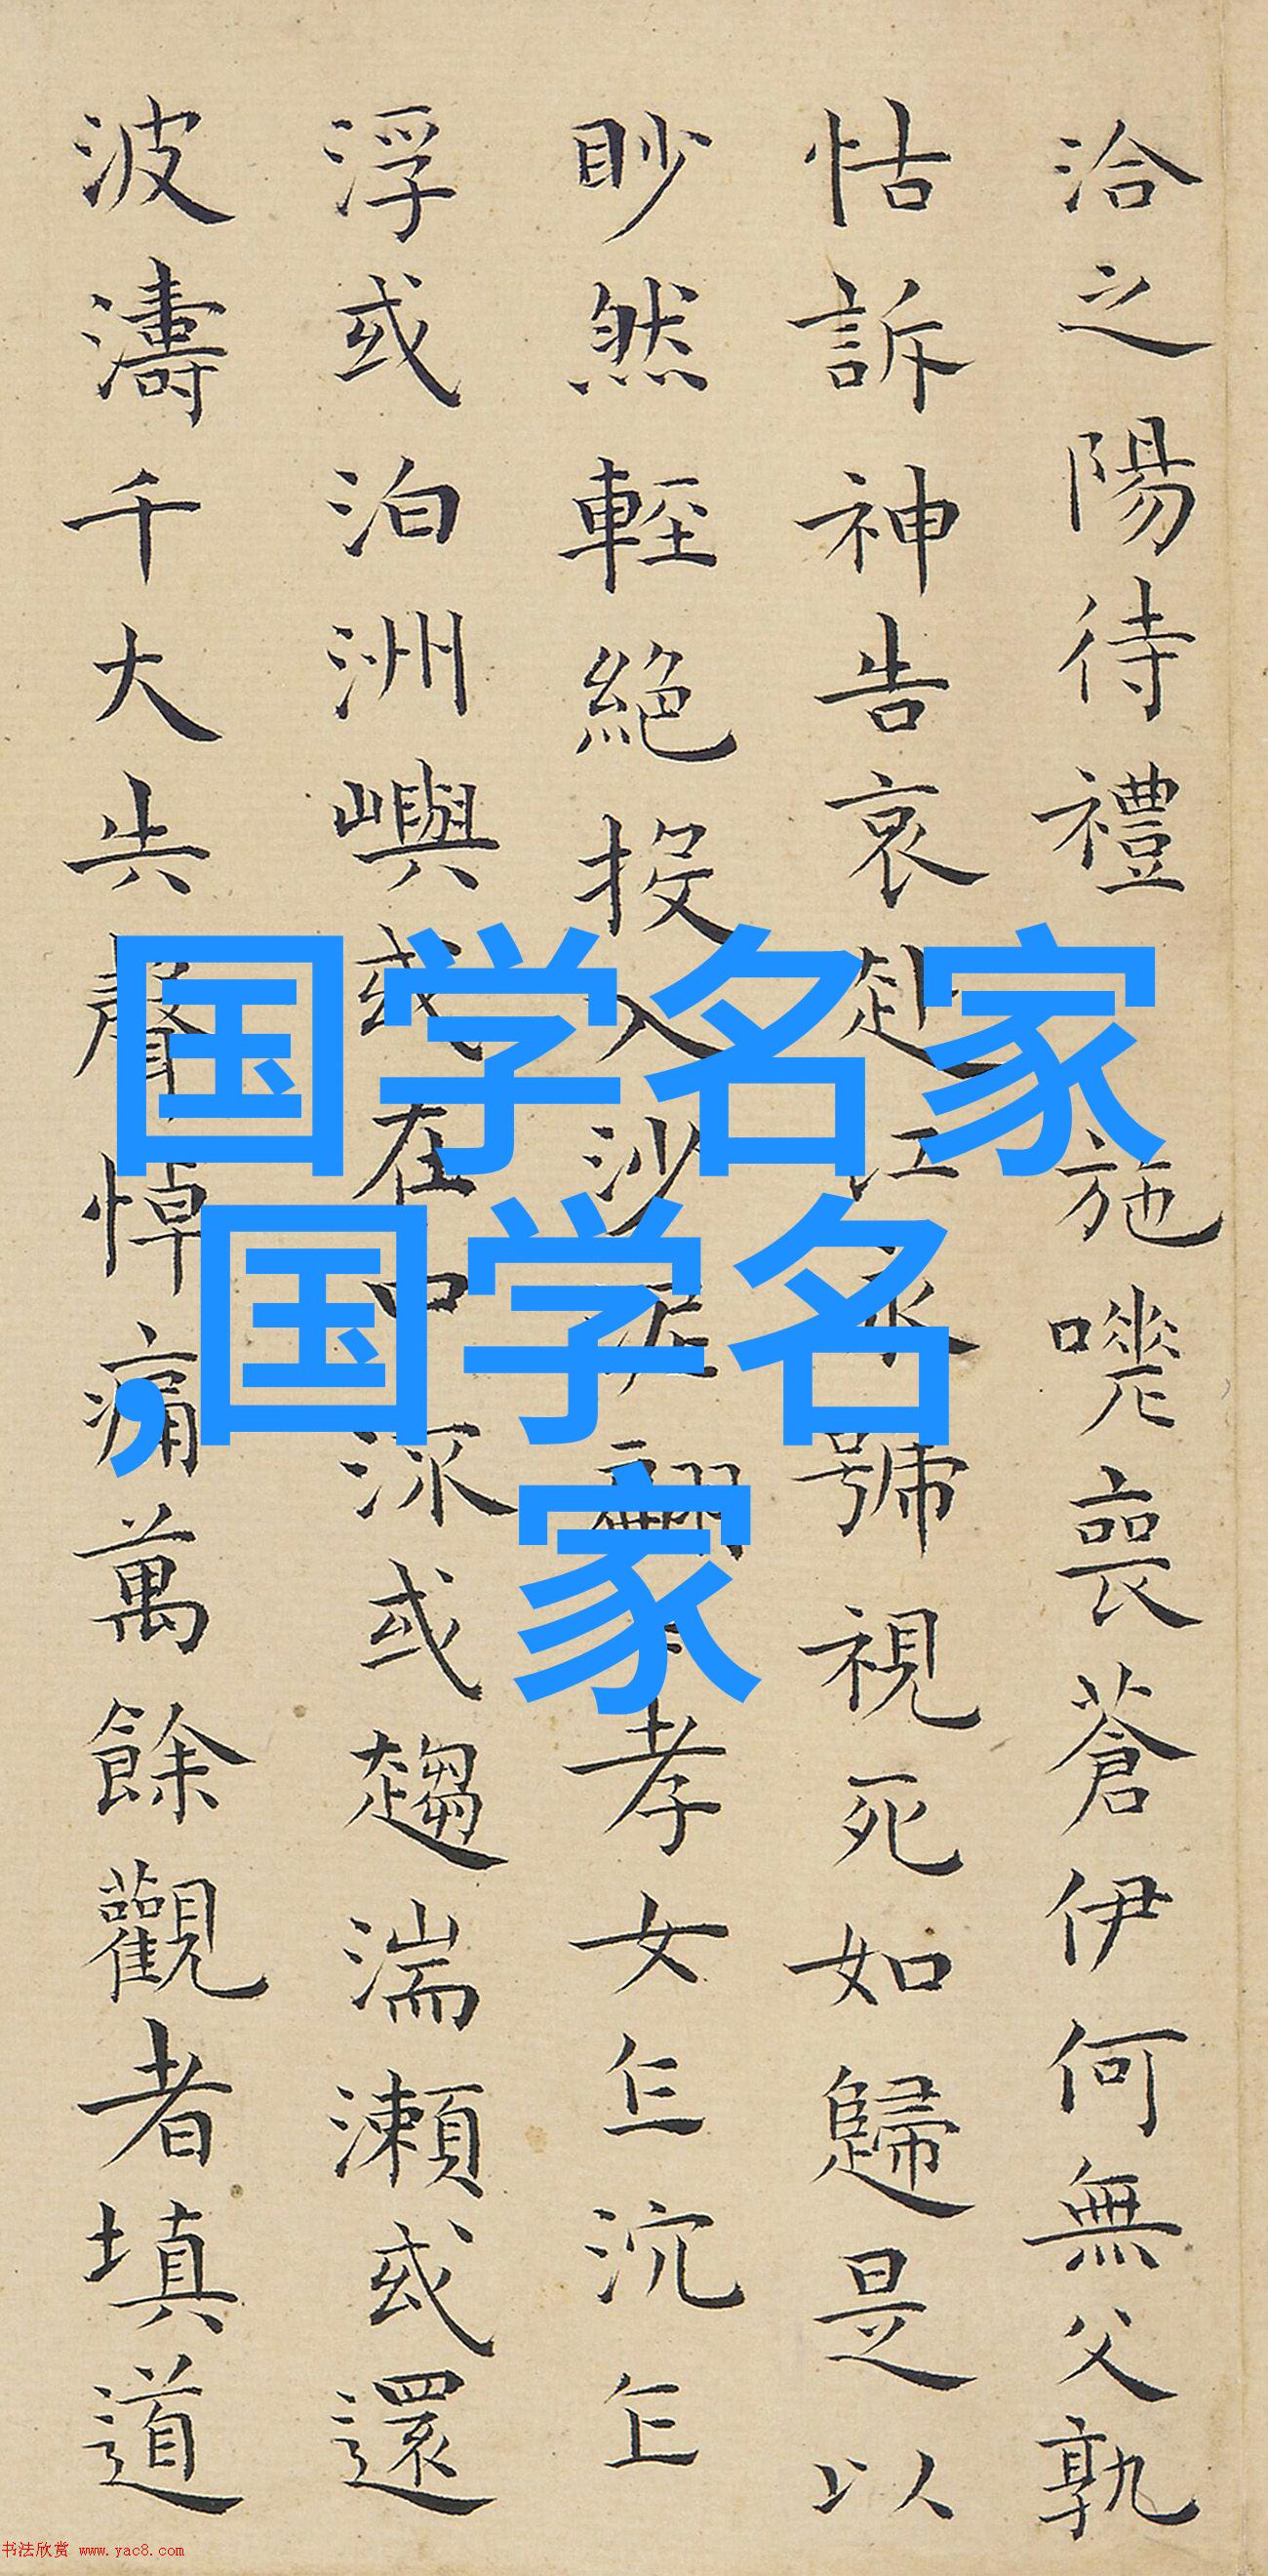 洽之陽待禮施嗟喪蒼伊何無父孰
怙訴神告哀赴江永號視死如歸是以
眇然輕絕投入沙泥翩孝女乍沉乍
浮或泊洲嶼或在中流或趨湍瀨或還
波濤千大失聲悼痛萬餘觀者填道
国学名家
,国学名
家
书法欣赏 www.yac8.com